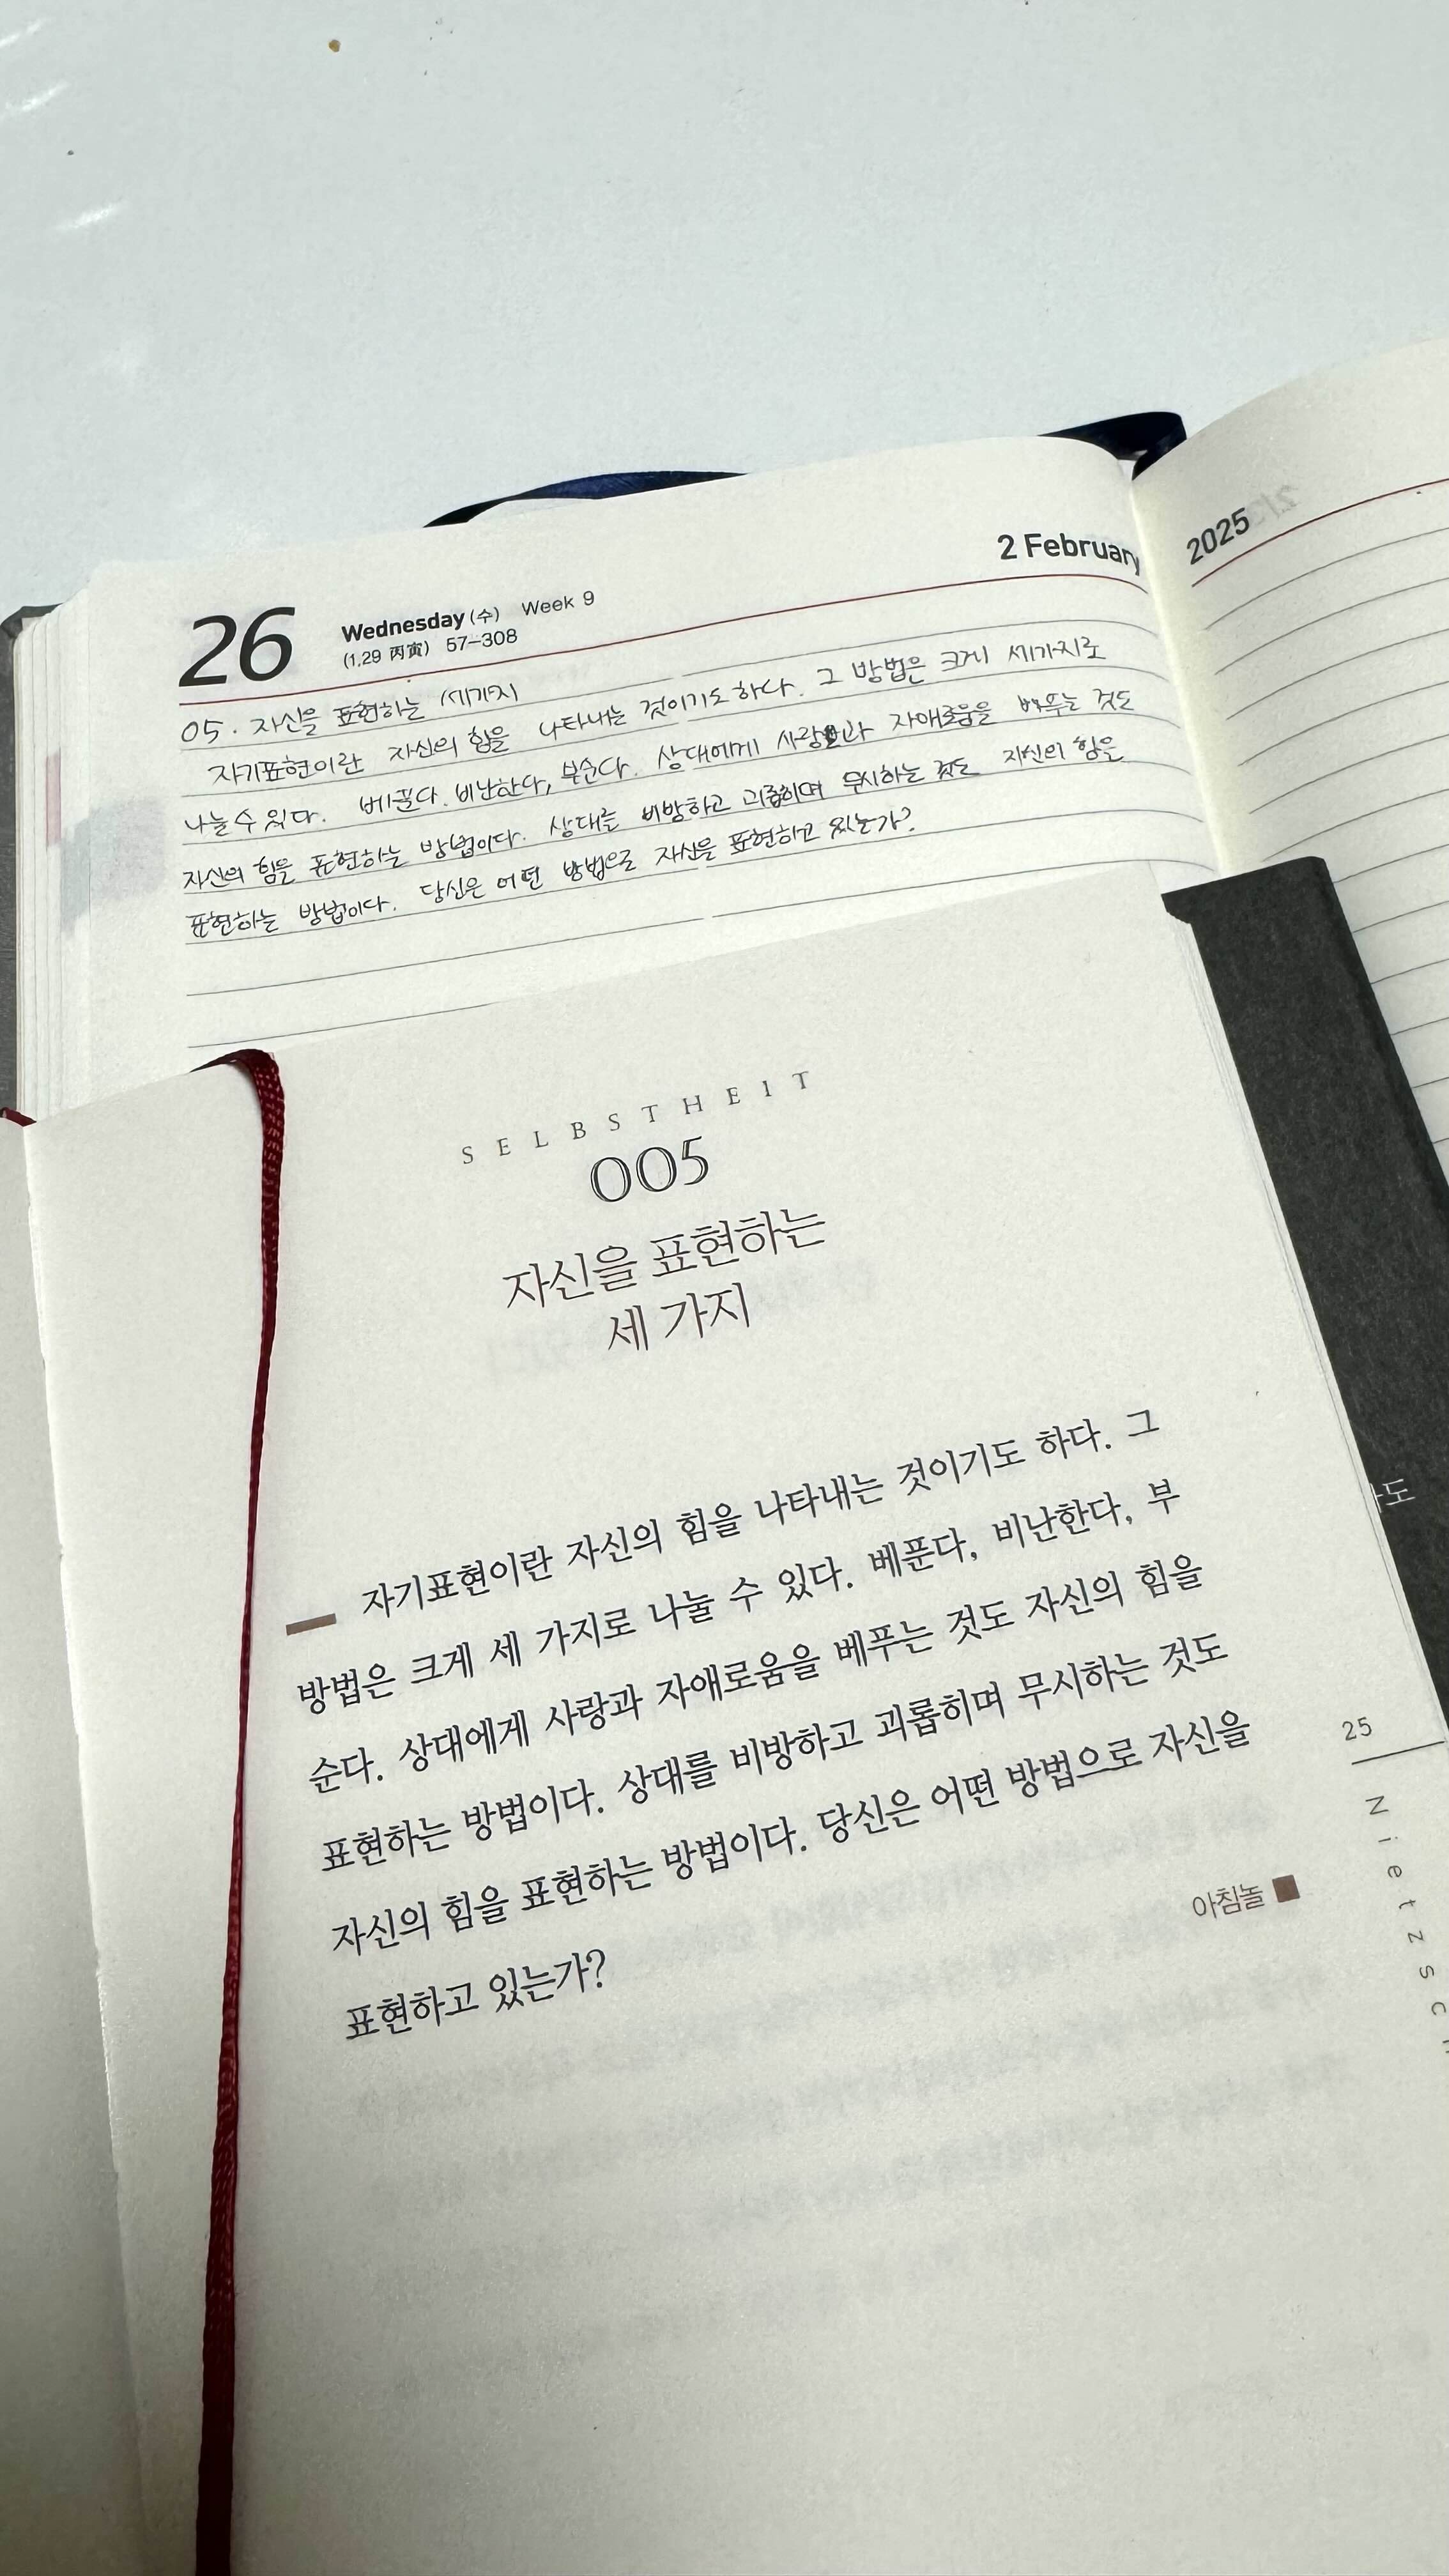 2 February
2025
26
Wednesday (수) Week 9
(1.29 丙寅) 57–308
05. 자신을 표현하는 세가지
자기표현이란 자신의 힘을 나타내는 것이기도 하다. 그 방법은 크게 세가지로
나눌 수 있다. 베푼다. 비난한다, 부순다. 상대에게 사랑과 자애로움을 베푸는 것도
자신의 힘을 표현하는 방법이다. 상대를 비방하고 괴롭히며 무시하는 것도 자신의 힘을
표현하는 방법이다. 당신은 어떤 방법으로 자신을 표현하고 있는가?
SELBSTHEIT
005
자신을 표현하는
세 가지
자기표현이란 자신의 힘을 나타내는 것이기도 하다. 그
방법은 크게 세 가지로 나눌 수 있다. 베푼다, 비난한다, 부
순다. 상대에게 사랑과 자애로움을 베푸는 것도 자신의 힘을
표현하는 방법이다. 상대를 비방하고 괴롭히며 무시하는 것도
자신의 힘을 표현하는 방법이다. 당신은 어떤 방법으로 자신을
표현하고 있는가?
아침놀
25
Nietzsch
도